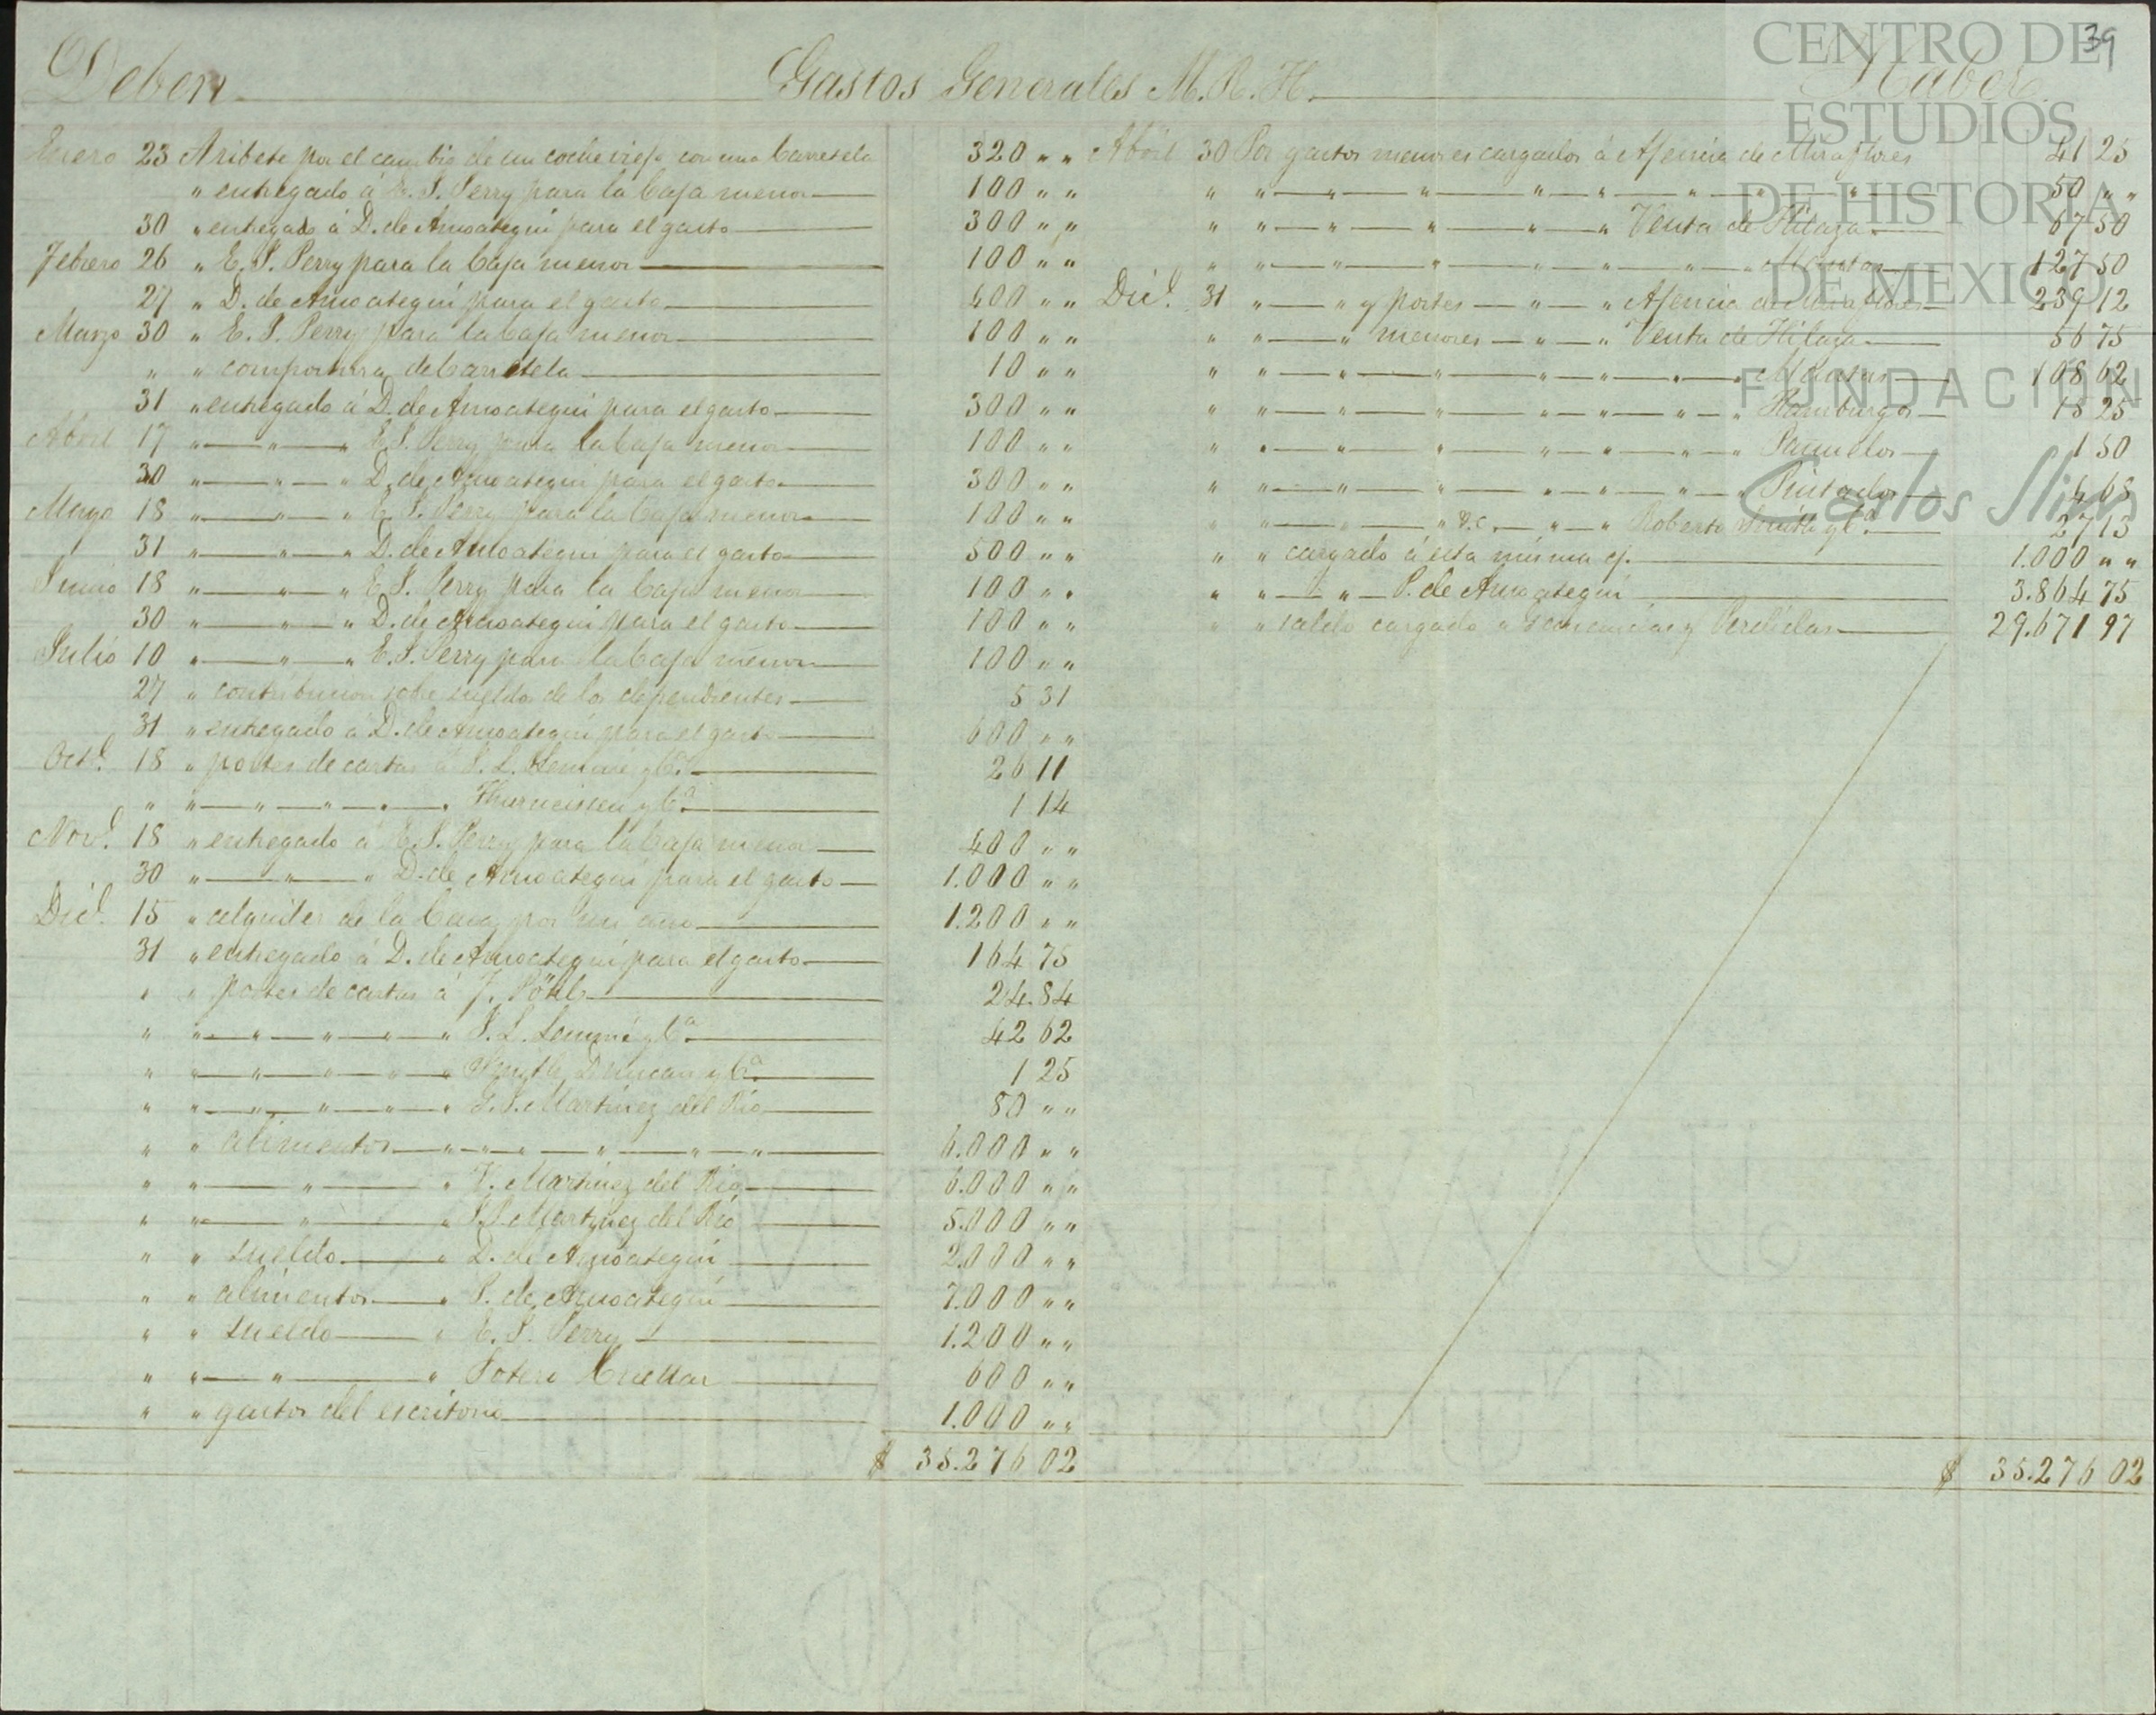 39
Deben Gastos Generales M. R. H. Haber
Enero 23 A ribete por el cambio de un coche viejo con una Carretela 320 " "
" entregado á E. S. Perry para la Caja menor 100 " "
30 " entregado á D. de Ansoategui para el gasto 300 " "
Febrero 26 " E. S. Perry para la Caja menor 100 " "
27 " D. de Ansoategui para el gasto 600 " "
Marzo 30 " E. S. Perry para la Caja menor 100 " "
" " compostura de Carretela 10 " "
31 " entregado á D. de Ansoategui para el gasto 300 " "
Abril 17 " " " E. S. Perry para la Caja menor 100 " "
30 " " " D. de Ansoategui para el gasto 300 " "
Mayo 18 " " " E. S. Perry para la Caja menor 100 " "
31 " " " D. de Ansoategui para el gasto 500 " "
Junio 18 " " " E. S. Perry para la Caja menor 100 " "
30 " " " D. de Ansoategui para el gasto 100 " "
Julio 10 " " " E. S. Perry para la Caja menor 100 " "
27 " contribucion sobre sueldo de los dependientes 5 31
31 " entregado á D. de Ansoategui para el gasto 600 " "
Octe. 18 " portes de cartas á S. L. Lemmé y Ca. 26 11
" " " " " " y Ca. 1 14
Nove. 18 " entregado á E. S. Perry para la Caja menor 400 " "
30 " " " D. de Ansoategui para el gasto 1.000 " "
Dice. 15 " alquiler de la Casa por un año 1.200 " "
31 " entregado á D. de Ansoategui para el gasto 164 75
" " portes de cartas á J. Pöhls 24.84
" " " " " " S. L. Lemmé y Ca. 42 62
" " " " " " Smyth, Duncan y Ca. 1 25
" " " " " " Martinez del Rio 80 " "
" " alimentos " " " " " " 6.000 " "
" " " " V. Martinez del Rio 6.000 " "
" " " " Martinez del Rio 5.000 " "
" " sueldo " D. de Ansoategui 2.000 " "
" " alimentos " P. de Ansoategui 7.000 " "
" " sueldo " E. S. Perry 1.200 " "
" " " " Sotero Cuellar 600 " "
" " gastos del escritorio 1.000 " "
$ 35.276 02
Abril 30 Por gastos menores cargados á Agencia de Miraflores 41 25
" " " " " " " " 50 " "
" " " " " " Venta de Hilaza 67 50
" " " " " " " " Mantas 127 50
Dice. 31 " " y portes " " Agencia de Miraflores 239 12
" " " menores " " Venta de Hilaza 56 75
" " " " " " " Mantas 108 62
" " " " " " " Hamburgos 15 25
" " " " " " " Pañuelos 1 50
" " " " " " " Pintados 4 68
" " " " &c. " " Roberto Smith y Ca. 27 13
" " cargado á esta misma cj. 1.000 " "
" " " " P. de Ansoategui 3.864 75
" " saldo cargado á Ganancias y Perdidas 29.671 97
$ 35.276 02
CENTRO DE
ESTUDIOS
DE HISTORIA
DE MEXICO
FUNDACIÓN
Carlos Slim